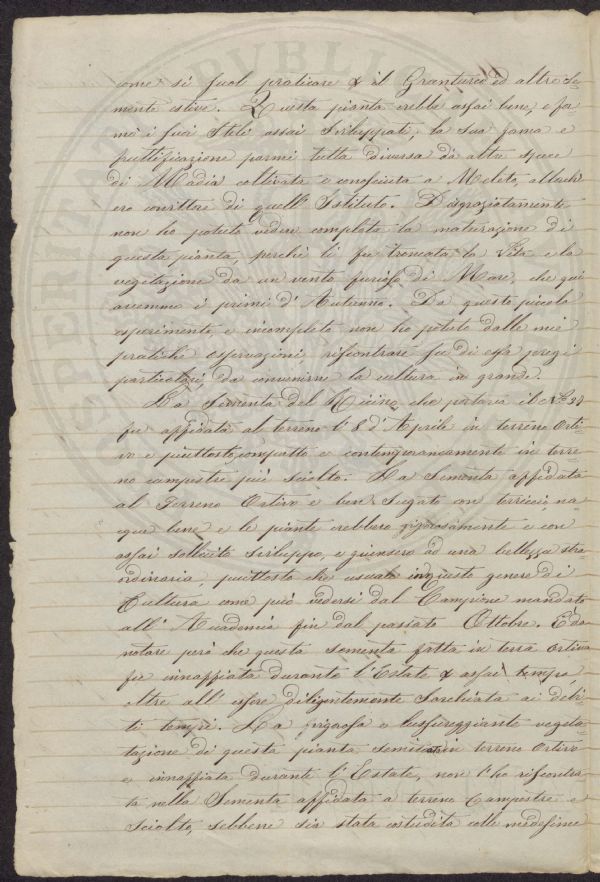 come si suol praticare p il Granturco ed altre Se-
mente estive. Questa pianta crebbe assai bene, e for-
mò i suoi Steli assai Sviluppati, la sua forma e
fruttificazione parmi tutta diversa da altre specie
di Madia coltivata e conosciuta a Meleto, allorch'
ero convittore di quell'Istituto. Disgraziatamente
non ho potuto vedere completa la maturazione di
questa pianta, perchè li fu troncata la Vita e la
vegetazione da un vento furioso di Mare, che qui
avemmo i primi d'Autunno. Da questo piccolo
esperimento, e incompleto non ho potuto dalle mie
pratiche osservazioni riscontrare su di essa pregi
particolari, da convenirne la cultura in grande.
La Sementa del Ricino, che portava il N.o
fu affidata al terreno l'8 d'Aprile in terreno Orti-
vo e piuttosto compatto e contemporaneamente in terre-
no campestre più sciolto. La Sementa affidata
al Terreno Ortivo e ben Sugato con terricci, na-
que bene e le piante crebbero rigorosamente e con
assai sollecito Sviluppo, e giunsero ad una bellezza stra-
ordinaria, piuttosto che usuale in questo genere di
Cultura come può vedersi dal Campione mandato
all'Accademia fin dal passato Ottobre. È da
notare però che questa sementa fatta in terra Ortiva
fu innaffiata durante l'Estate p assai tempo,
oltre all'essere diligentemente Sarchiata ai debi-
ti tempi. La rigorosa e lussureggiante vegeta-
tazione di questa pianta seminata in terreno Ortivo
e innaffiata durante l'Estate, non l'ho riscontra-
ta nella Sementa affidata a terreno Campestre e
Sciolto, sebbene sia stata custodita colle medesime